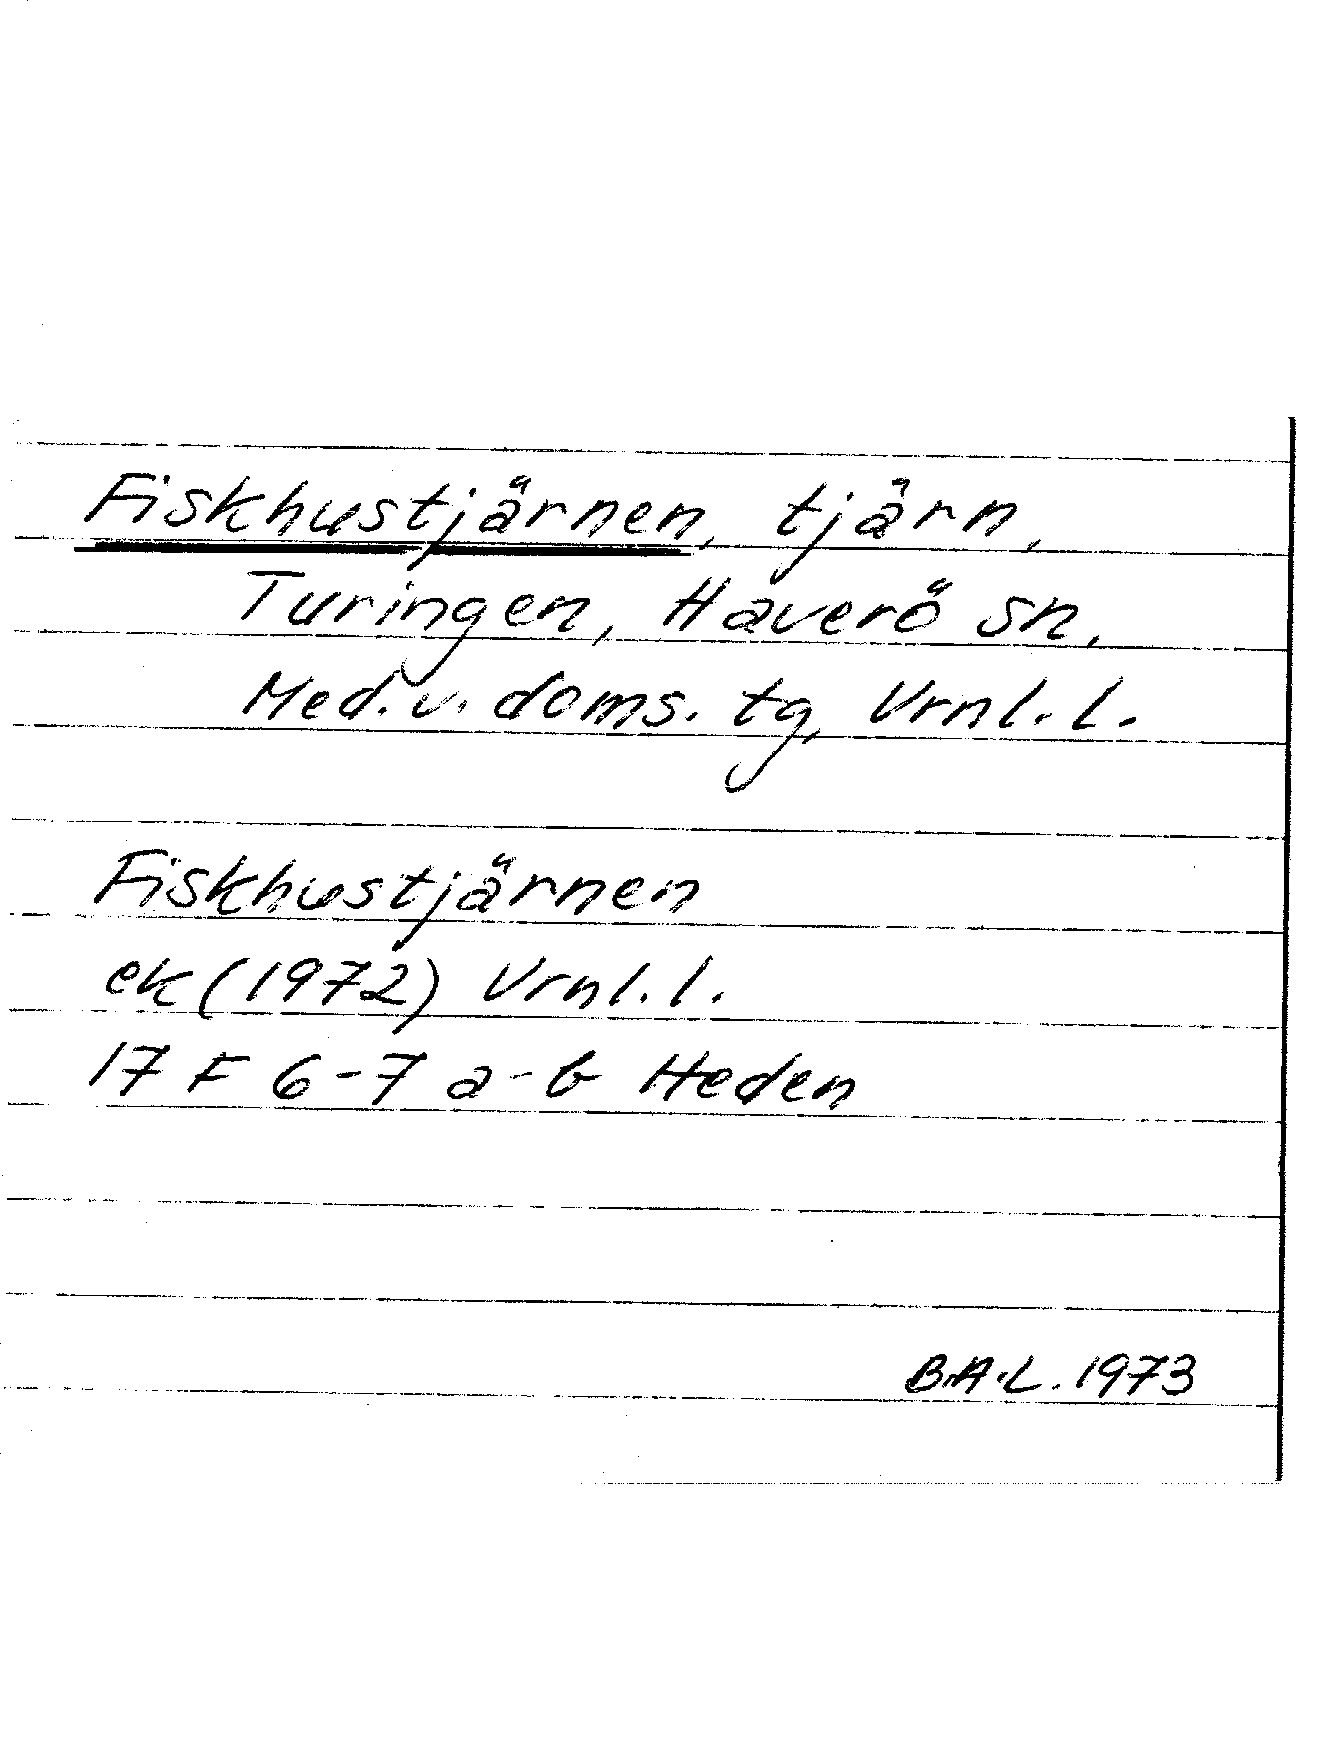 Fiskhustjärnen, tjärn,
Turingen, Haverö sn,
Med. v. doms. tg, Vrnl. l.
Fiskhustjärnen
ek (1972) Vrnl. l.
17 F 6-7 a-b Heden
B.A.L. 1973